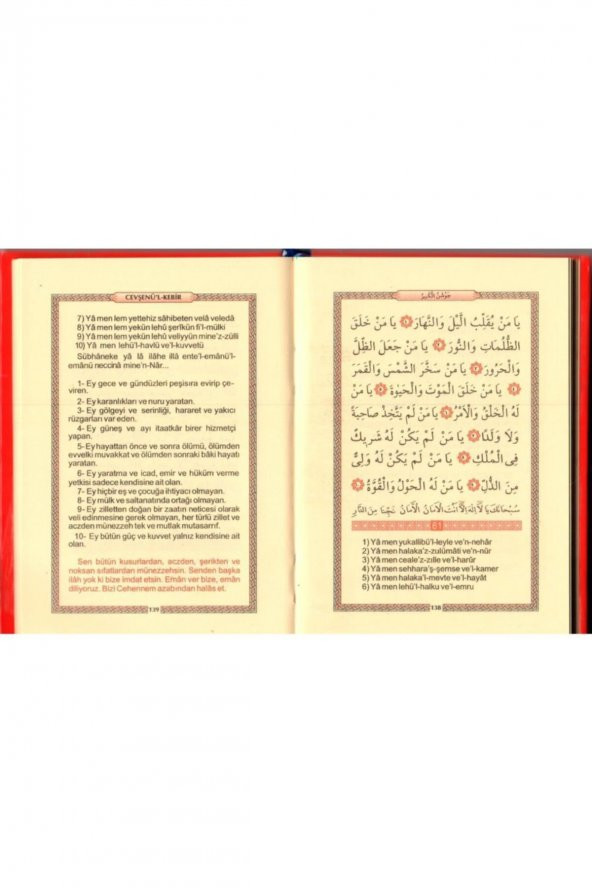 جَوْشَنُ الْكَبِيرُ
يَا مَنْ يُقَلِّبُ الَّيْلَ وَالنَّهَارَ ۞ يَا مَنْ خَلَقَ
الظُّلُمَاتِ وَالنُّورَ ۞ يَا مَنْ جَعَلَ الظِّلَّ
وَالْحَرُورَ ۞ يَا مَنْ سَخَّرَ الشَّمْسَ وَالْقَمَرَ
۞ يَا مَنْ خَلَقَ الْمَوْتَ وَالْحَيٰوةَ ۞ يَا مَنْ
لَهُ الْخَلْقُ وَالْاَمْرُ ۞ يَا مَنْ لَمْ يَتَّخِذْ صَاحِبَةً
وَلَا وَلَدًا ۞ يَا مَنْ لَمْ يَكُنْ لَهُ شَرِيكٌ
فِى الْمُلْكِ ۞ يَا مَنْ لَمْ يَكُنْ لَهُ وَلِىٌّ
مِنَ الذُّلِّ ۞ يَا مَنْ لَهُ الْحَوْلُ وَالْقُوَّةُ ۞
سُبْحَانَكَ يَا لَا اِلٰهَ اِلَّا اَنْتَ الْاَمَانُ الْاَمَانُ نَجِّنَا مِنَ النَّارِ
61
1) Yâ men yukallibü'l-leyle ve'n-nehâr
2) Yâ men halaka'z-zulümâti ve'n-nûr
3) Yâ men ceale'z-zılle ve'l-harûr
4) Yâ men sehhara'ş-şemse ve'l-kamer
5) Yâ men halaka'l-mevte ve'l-hayât
6) Yâ men lehü'l-halku ve'l-emru
138
CEVŞENÜ'L-KEBİR
7) Yâ men lem yettehiz sâhibeten velâ veledâ
8) Yâ men lem yekün lehû şerîkün fi'l-mülki
9) Yâ men lem yekün lehû veliyyün mine'z-zülli
10) Yâ men lehü'l-havlü ve'l-kuvvetü
Sübhâneke yâ lâ ilâhe illâ ente'l-emânü'l-
emânü neccinâ mine'n-Nâr...
1- Ey gece ve gündüzleri peşisıra evirip çe-
viren.
2- Ey karanlıkları ve nuru yaratan.
3- Ey gölgeyi ve serinliği, hararet ve yakıcı
rüzgarları var eden.
4- Ey güneş ve ayı itaatkâr birer hizmetçi
yapan.
5- Ey hayattan önce ve sonra ölümü, ölümden
evvelki muvakkat ve ölümden sonraki bâki hayatı
yaratan.
6- Ey yaratma ve icad, emir ve hüküm verme
yetkisi sadece kendisine ait olan.
7- Ey hiçbir eş ve çocuğa ihtiyacı olmayan.
8- Ey mülk ve saltanatında ortağı olmayan.
9- Ey zilletten doğan bir zaatın neticesi olarak
veli edinmesine gerek olmayan, her türlü zillet ve
aczden münezzeh tek ve mutlak mutasarrıf.
10- Ey bütün güç ve kuvvet yalnız kendisine ait
olan.
Sen bütün kusurlardan, aczden, şerikten ve
noksan sıfatlardan münezzehsin. Senden başka
ilâh yok ki bize imdat etsin. Emân ver bize, emân
diliyoruz. Bizi Cehennem azabından halâs et.
139